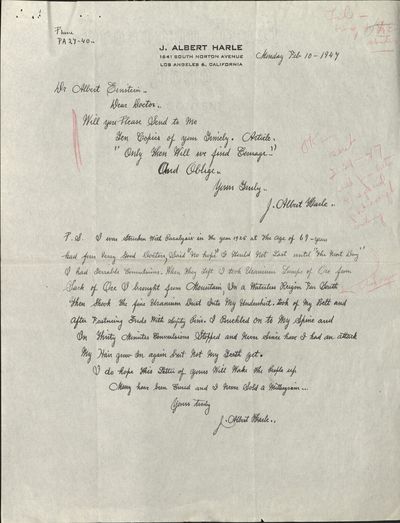 Phone
PA 27-40..
J. ALBERT HARLE
1641 SOUTH NORTON AVENUE
LOS ANGELES 6, CALIFORNIA
Monday Feb 10 - 1947
Dr. Albert Einstein..
Dear Doctor..
Will you Please Send to Me
Ten Copies of your Timely. Article.
" Only Then Will we find Courage.."
And Oblige..
Yours Truly..
J. Albert Harle..
P.S. I was Stricken With Paralysis in the year 1925 at the age of 69 - years
had four Very Good Doctors Said "No hope" I Would Not Last until "The Next Day"
I had Terrable Convulsions. When they left I took Uranium Lumps of Ore from
Sack of Ore I brought from Mountain in a Waterless Region Far South
then Shook the fine Uranium Dust into My Undershirt. Took of My Belt and
After Fastening Ends With Safety Pins. I Buckled on to My Spine and
In Thirty Minutes Convulsions Stopped and Never Since have I had an attack
My Hair grew In again but Not My Teeth yet.
I do hope This Letter of yours Will Wake the People up
Many have been Cured and I Never Sold a Milligram...
Yours Truly
J. Albert Harle..